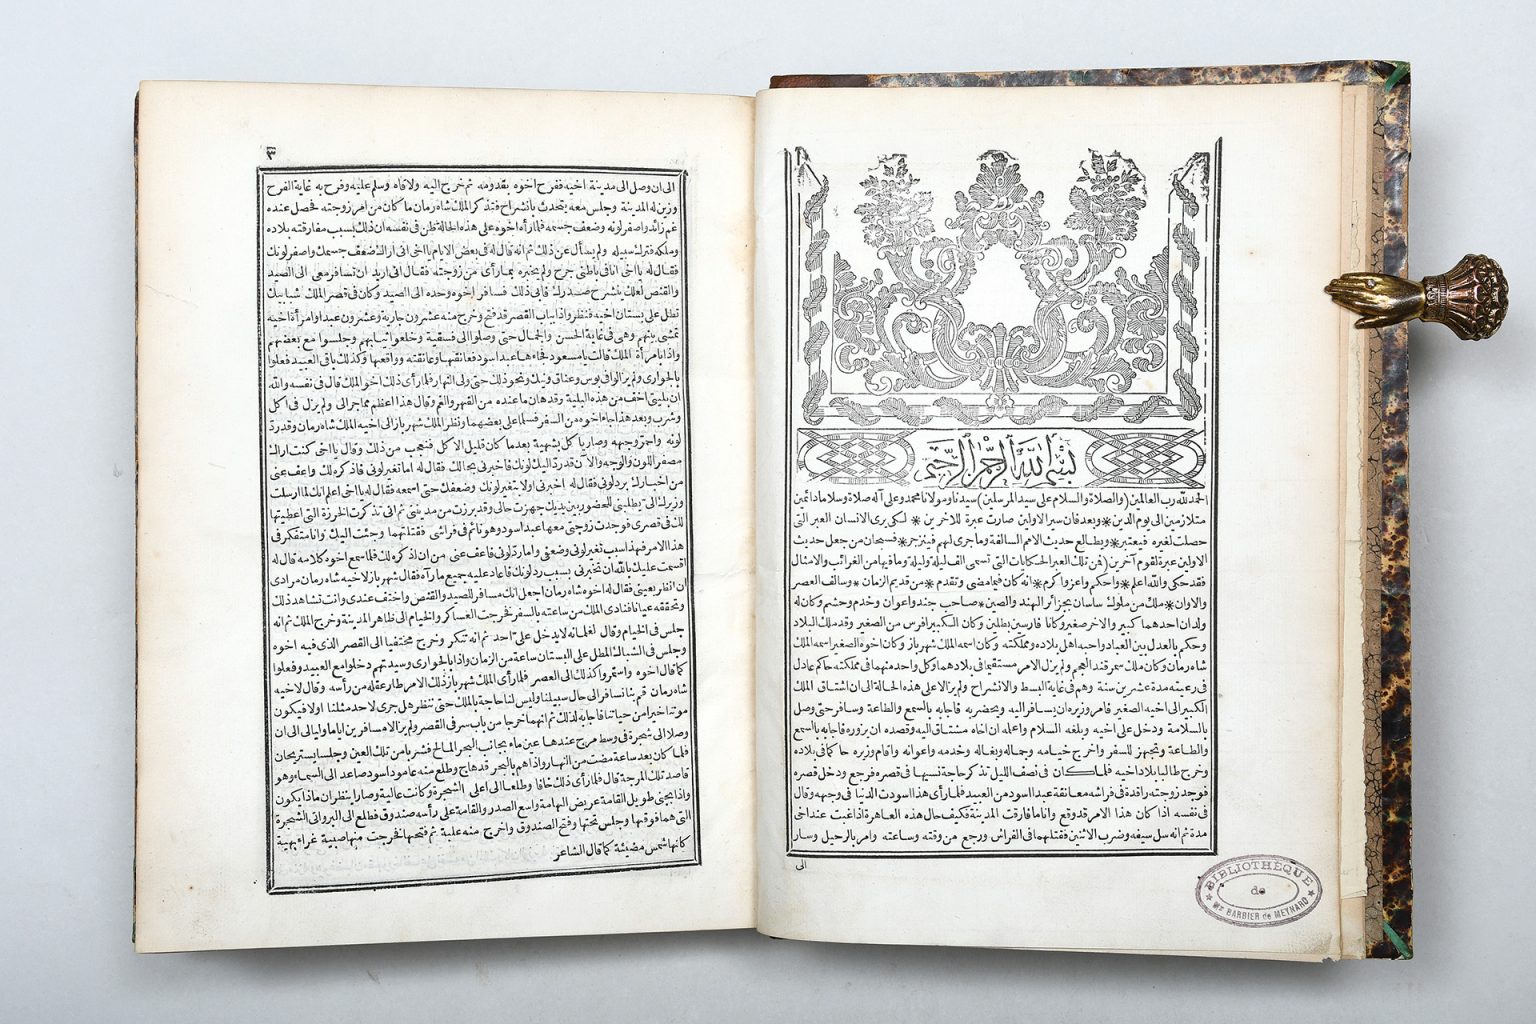 بسم الله الرحمن الرحيم
الحمد لله رب العالمين (والصلاة والسلام على سيد المرسلين) سيدنا ومولانا محمد وعلى آله صلاة وسلاما دائمين
متلازمين الى يوم الدين * وبعد فان سير الاولين صارت عبرة للآخرين * لكى يرى الانسان العبر التى
حصلت لغيره فيعتبر * ويطالع حديث الامم السالفة وما جرى لهم فينزجر * فسبحان من جعل حديث
الاولين عبرة لقوم آخرين (فمن تلك العبر الحكايات التى تسمى الف ليلة وليلة وما فيها من الغرائب والامثال
فقد حكى والله اعلم * واحكم واعز واكرم * انه كان فيما مضى وتقدم * من قديم الزمان * وسالف العصر
والاوان * ملك من ملوك ساسان بجزائر الهند والصين * صاحب جند واعوان وخدم وحشم وكان له
ولدان احدهما كبير والاخر صغير وكانا فارسين بطلين وكان الكبير افرس من الصغير وقد ملك البلاد
وحكم بالعدل بين العباد واحبه اهل بلاده ومملكته وكان اسمه الملك شهرباز وكان اخوه الصغير اسمه الملك
شاه رمان وكان ملك سمرقند العجم ولم يزل الامر مستقيما فى بلادهما وكل واحد منهما فى مملكته حاكم عادل
فى رعيته مدة عشرين سنة وهم فى غاية البسط والانشراح ولم يزالا على هذه الحالة الى ان اشتاق الملك
الكبير الى اخيه الصغير فامر وزيره ان يسافر اليه ويحضر به فاجابه بالسمع والطاعة وسافر حتى وصل
بالسلامة ودخل على اخيه وبلغه السلام واعلمه ان اخاه مشتاق اليه وقصده ان يزوره فاجابه بالسمع
والطاعة وتجهيز للسفر واخرج خيامه وجماله وبغاله وخدمه واعوانه واقام وزيره حاكما فى بلاده
وخرج طالبا بلاد اخيه فلما كان فى نصف الليل تذكر حاجة نسيها فى قصره فرجع ودخل قصره
فوجد زوجته راقدة فى فراشه معانقة عبدا اسود من العبيد فلما رأى هذا اسودت الدنيا فى وجهه وقال
فى نفسه اذا كان هذا الامر قد وقع وانا ما فارقت المدينة فكيف حال هذه العاهرة اذا غبت عند اخى
مدة ثم انه سل سيفه وضرب الاثنين فقتلهما فى الفراش ورجع من وقته وساعته وامر بالرحيل وسار
الى
BIBLIOTHÈQUE
de
BARBIER de MEYNARD
٣
الى ان وصل الى مدينة اخيه ففرح اخوه بقدومه ثم خرج اليه ولاقاه وسلم عليه وفرح به غاية الفرح
وزين له المدينة وجلس معه يتحدث بانشراح فتذكر الملك شاه رمان ما كان من امر زوجته فحصل عنده
غم زائد واصفر لونه وضعف جسمه فلما رآه اخوه على هذه الحالة ظن فى نفسه ان ذلك بسبب مفارقته بلاده
وملكه فترك سبيله ولم يسأل عن ذلك ثم انه قال له فى بعض الايام يا اخى انى اراك ضعف جسمك واصفر لونك
فقال له يا اخى انا فى باطنى جرح ولم يخبره بما رأى من زوجته فقال انى اريد ان تسافر معى الى الصيد
والقنص لعلك ينشرح صدرك فأبى ذلك فسافر اخوه وحده الى الصيد وكان فى قصر الملك شبابيك
تطل على بستان اخيه فنظر واذا بباب القصر قد فتح وخرج منه عشرون جارية وعشرون عبدا وامرأة اخيه
تمشى بينهم وهى فى غاية الحسن والجمال حتى وصلوا الى فسقية وخلعوا ثيابهم وجلسوا مع بعضهم
واذا بامرأة الملك قالت يا مسعود فجاءها عبد اسود فعانقها وعانقته وواقعها وكذلك باقى العبيد فعلوا
بالجوارى ولم يزالوا فى بوس وعناق ونيك ونحو ذلك حتى ولى النهار فلما رأى ذلك اخو الملك قال فى نفسه والله
ان بليتى اخف من هذه البلية وقد هان ما عنده من القهر والغم وقال هذا اعظم مما جرى لى ولم يزل فى اكل
وشرب وبعد هذا جاء اخوه من السفر فسلما على بعضهما ونظر الملك شهرباز الى اخيه الملك شاه رمان وقد رد
لونه واحمر وجهه وصار يأكل بشهية بعد ما كان قليل الاكل فتعجب من ذلك وقال يا اخى كنت اراك
مصفر اللون والوجه والآن قد رد اليك لونك فاخبرنى بحالك فقال له اما تغير لونى فاذكره لك واعف عنى
من اخبارك برد لونى فقال له اخبرنى اولا بتغير لونك وضعفك حتى اسمعه فقال له يا اخى اعلم انك لما ارسلت
وزيرك الى يطلبنى للحضور بين يديك جهزت حالى وقد برزت من مدينتى ثم انى تذكرت الخرزة التى اعطيتها
لك فى قصرى فوجدت زوجتى معها عبد اسود وهو نائم فى فراشى فقتلتهما وجئت اليك وانا متفكر فى
هذا الامر فهذا سبب تغير لونى وضعفى واما رد لونى فاعف عنى من ان اذكره لك فلما سمع اخوه كلامه قال له
اقسمت عليك بالله ان تخبرنى بسبب رد لونك فاعاد عليه جميع ما رآه فقال شهرباز لاخيه شاه رمان مرادى
ان انظر بعينى فقال له اخوه شاه رمان اجعل انك مسافر للصيد والقنص واختف عندى وانت تشاهد ذلك
وتحققه عيانا فنادى الملك من ساعته بالسفر فخرجت العساكر والخيام الى ظاهر المدينة وخرج الملك ثم انه
جلس فى الخيام وقال لغلمانه لا يدخل على احد ثم انه تنكر وخرج مختفيا الى القصر الذى فيه اخوه
وجلس فى الشباك المطل على البستان ساعة من الزمان واذا بالجوارى وسيدتهم دخلوا مع العبيد وفعلوا
كما قال اخوه واستمروا كذلك الى العصر فلما رأى الملك شهرباز ذلك الامر طار عقله من رأسه وقال لاخيه
شاه رمان قم بنا نسافر الى حال سبيلنا وليس لنا حاجة بالملك حتى ننظر هل جرى لاحد مثلنا اولا فيكون
موتنا خير من حياتنا فاجابه لذلك ثم انهما خرجا من باب سر فى القصر ولم يزالا مسافرين اياما وليالى الى ان
وصلا الى شجرة فى وسط مرج عندها عين ماء بجانب البحر المالح فشربا من تلك العين وجلسا يستريحان
فلما كان بعد ساعة مضت من النهار واذا هم بالبحر قد هاج وطلع منه عامود اسود صاعد الى السماء وهو
قاصد تلك المرجة قال فلما رأى ذلك خافا وطلعا الى اعلى الشجرة وكانت عالية وصارا ينظران ماذا يكون
واذا بجنى طويل القامة عريض الهامة واسع الصدر والقامة على رأسه صندوق فطلع الى البر واتى الشجرة
التى هما فوقها وجلس تحتها وفتح الصندوق واخرج منه علبة ثم فتحها فخرجت منها صبية غراء بهية
كأنها شمس مضيئة كما قال الشاعر